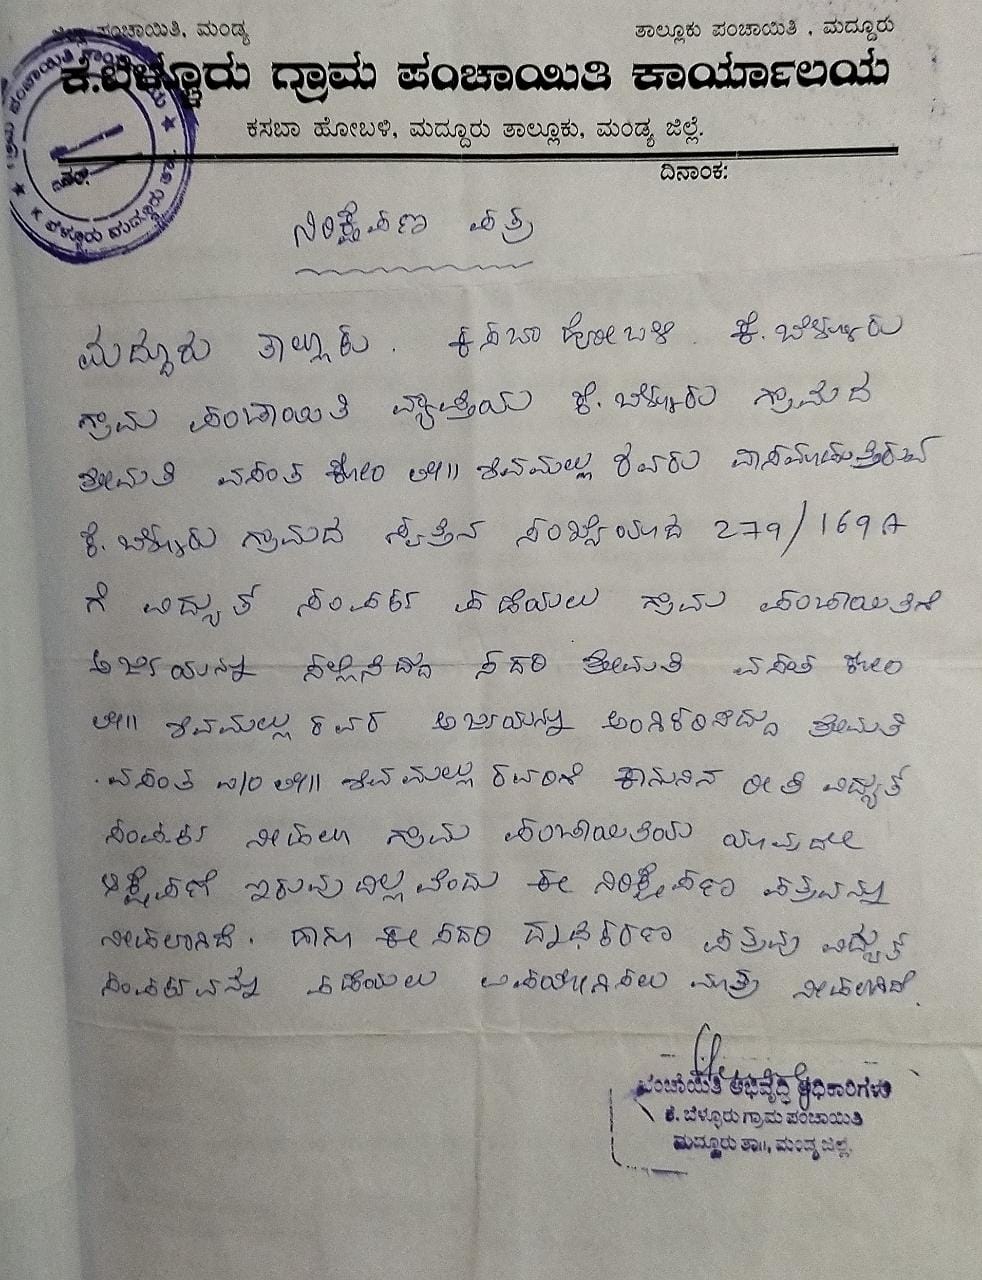 ಜಿಲ್ಲಾ ಪಂಚಾಯಿತಿ, ಮಂಡ್ಯ ತಾಲ್ಲೂಕು ಪಂಚಾಯಿತಿ , ಮದ್ದೂರು
ಕೆ.ಬೆಳ್ಳೂರು ಗ್ರಾಮ ಪಂಚಾಯಿತಿ ಕಾರ್ಯಾಲಯ
ಕಸಬಾ ಹೋಬಳಿ, ಮದ್ದೂರು ತಾಲ್ಲೂಕು, ಮಂಡ್ಯ ಜಿಲ್ಲೆ.
ದಿನಾಂಕ:
ನಿರಾಕ್ಷೇಪಣ ಪತ್ರ
ಮದ್ದೂರು ತಾಲ್ಲೂಕು. ಕಸಬಾ ಹೋಬಳಿ. ಕೆ.ಬೆಳ್ಳೂರು
ಗ್ರಾಮ ಪಂಚಾಯಿತಿ ವ್ಯಾಪ್ತಿಯ ಕೆ.ಬೆಳ್ಳೂರು ಗ್ರಾಮದ
ಶ್ರೀಮತಿ ವಸಂತ ಕೋಂ ಲೇ|| ಶಿವಮಲ್ಲು ರವರು ವಾಸವಾಗಿರುವ
ಕೆ.ಬೆಳ್ಳೂರು ಗ್ರಾಮದ ಸ್ವತ್ತಿನ ಸಂಖ್ಯೆಯಾದ 279/169A
ಗೆ ವಿದ್ಯುತ್ ಸಂಪರ್ಕ ಪಡೆಯಲು ಗ್ರಾಮ ಪಂಚಾಯಿತಿಗೆ
ಅರ್ಜಿಯನ್ನು ಸಲ್ಲಿಸಿದ್ದು ಸದರಿ ಶ್ರೀಮತಿ ವಸಂತ ಕೋಂ
ಲೇ|| ಶಿವಮಲ್ಲು ರವರ ಅರ್ಜಿಯನ್ನು ಅಂಗೀಕರಿಸಿದ್ದು ಶ್ರೀಮತಿ
ವಸಂತ W/O ಲೇ|| ಶಿವಮಲ್ಲು ರವರಿಗೆ ಕಾನೂನಿನ ರೀತಿ ವಿದ್ಯುತ್
ಸಂಪರ್ಕ ನೀಡಲು ಗ್ರಾಮ ಪಂಚಾಯಿತಿಯ ಯಾವುದೇ
ಆಕ್ಷೇಪಣೆ ಇರುವುದಿಲ್ಲವೆಂದು ಈ ನಿರಾಕ್ಷೇಪಣಾ ಪತ್ರವನ್ನು
ನೀಡಲಾಗಿದೆ. ಹಾಗೂ ಈ ಸದರಿ ದೃಢೀಕರಣ ಪತ್ರವು ವಿದ್ಯುತ್
ಸಂಪರ್ಕವನ್ನು ಪಡೆಯಲು ಉಪಯೋಗಿಸಲು ಮಾತ್ರ ನೀಡಲಾಗಿದೆ
ಪಂಚಾಯಿತಿ ಅಭಿವೃದ್ಧಿ ಅಧಿಕಾರಿಗಳು
ಕೆ. ಬೆಳ್ಳೂರು ಗ್ರಾಮ ಪಂಚಾಯಿತಿ
ಮದ್ದೂರು ತಾ||, ಮಂಡ್ಯ ಜಿಲ್ಲೆ.